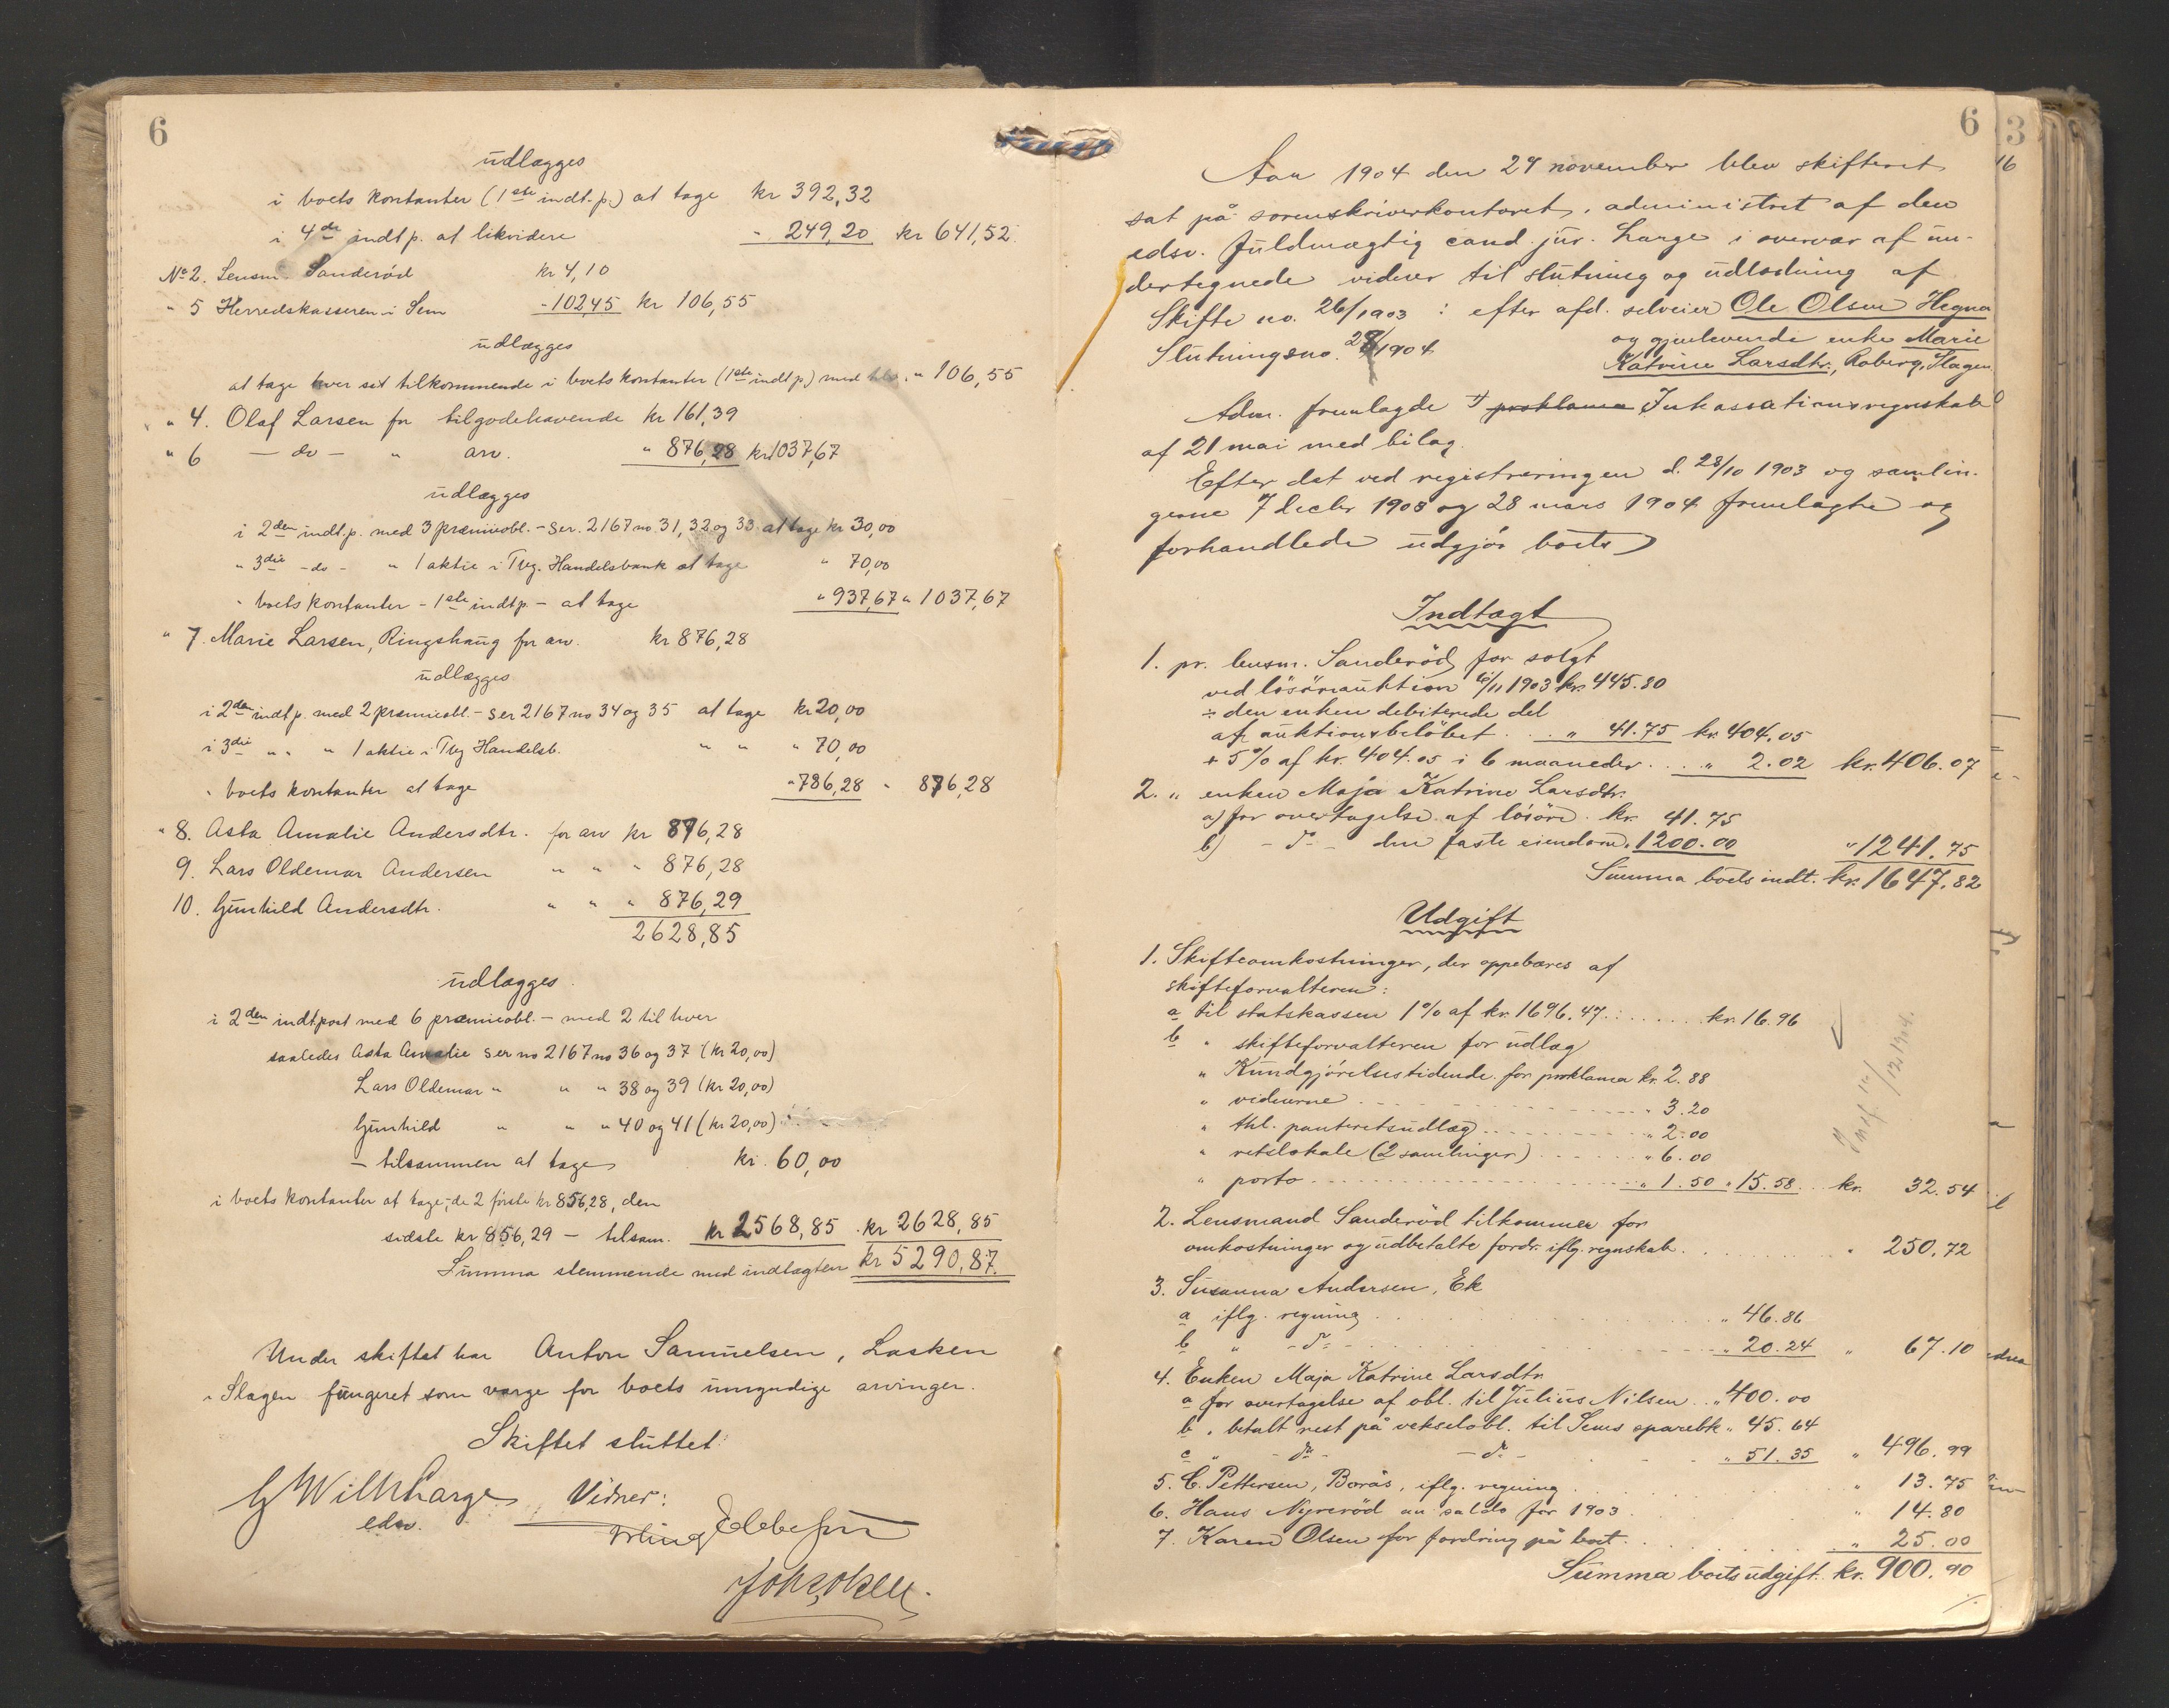 6
ūdlægges
i boets kontanter (1ste indt.p.) at tage kr 392,32
i 4de indt p. at likvidere " 249,20 kr 641,52
No 2. Lensm. Sanderöd kr 4,10
" 5 Herredskasseren i Sem - 102,45 kr 106,55
ūdlægges
at tage hver sit tilkommende i boets kontanter (1ste indt p.) med tils. " 106,55
" 4. Olaf Larsen for tilgodehavende kr 161,39
" 6 - do - " arv. " 876,28 kr 1037,67
ūdlægges
i 2den indt.p. med 3 præmieobl. - Ser. 2167 no. 31, 32 og 33 at tage kr 30,00
" 3die - do - " 1 aktie i Tbg. Handelsbank at tage " 70,00
" boets kontanter - 1ste indt p. - at tage " 937,67 " 1037,67
" 7. Marie Larsen, Ringshaūg for arv. kr 876,28
ūdlægges
i 2den indt p. med 2 præmieobl. - Ser 2167 no 34 og 35 at tage kr 20,00
i 3die " " " 1 aktie i Tbg Handelsb. " " " 70,00
" boets kontanter at tage " 786,28 " 876,28
" 8. Asta Amalie Andersdtr. for arv kr 876,28
9. Lars Oldemar Andersen " " " 876,28
10. Gūnhild Andersdtr. " " " 876,29
2628,85
ūdlægges
i 2den indtpost med 6 præmieobl. - med 2 til hver
saaledes Asta Amalie Ser no 2167 no 36 og 37 (kr 20,00)
Lars Oldemar " " " 38 og 39 (kr 20,00)
Gūnhild " " " 40 og 41 (kr 20,00)
- tilsammen at tage kr. 60,00
i boets kontanter at tage, de 2 første kr 856,28, den
sidste kr 856,29 - tilsam. kr 2568,85 kr 2628,85
Sūmma stemmende med indtægten kr 5290,87.
Under skiftet har Anton Samūelsen, Lasken
i Slagen fūngeret som værge for boets ūmyndige arvinger.
Skiftet slūttet
G Wilh Harge Vidner:
edsv.
Erling Ebbesen
Joh. Olsen
6
Aar 1904 den 24 november blev skifteret
sat på sorenskriverkontoret, administret af den
edsv. fūldmægtig cand. jūr. Harge i overvær af ūn-
dertegnede vidner til slūtning og ūdlodning af
Skifte no. 26/1903 : efter afd. selveier Ole Olsen Hegna
Slūtningsno. 28/1904 og gjenlevende enke Marie
Katrine Larsdtr., Roberg, Slagen.
Adm. fremlagde 1) proklama Inkassationsregnskab
af 21 mai med bilag.
Efter det ved registreringen d. 28/10 1903 og samlin-
gerne 7 decbr 1903 og 28 mars 1904 fremlagte og
forhandlede ūdgjör boets
Indtægt
1. pr. lensm. Sanderöd for solgt
ved lösöreaūktion 6/11 1903 kr. 445.80
÷ den enken debiterede del
af aūktionsbelöbet . . . " 41.75 kr. 404.05
+ 5% af kr. 404.05 i 6 maaneder . . . " 2.02 kr. 406.07
2. " enken Maja Katrine Larsdtr.
a) for overtagelse af lösöre. kr. 41.75
b) - do - den faste eiendom " 1200.00 " 1241.75
Sūmma boets indt. kr. 1647.82
Udgift
1. Skifteomkostninger, der oppebæres af
skifteforvalteren:
a til statskassen 1% af kr. 1696.47 . . . . . kr. 16.96
b " skifteforvalteren for ūdlæg
" Kūndgjörelsestidende for proklama kr. 2.88
" vidnerne . . . . " 3.20
" thl. panteretsūdlæg . . . . " 2.00
" retslokale (2 samlinger) . . . . " 6.00
" porto . . . . " 1.50 " 15.58 kr. 32.54
2. Lensmand Sanderöd tilkommer for
omkostninger og ūdbetalte fordr. iflg. regnskab . . . . " 250.72
3. Sūsanna Andersen, Ek
a iflg. regning . . . . " 46.86
b " - do - . . . . " 20.24 " 67.10
4. Enken Maja Katrine Larsdtr
a for overtagelse af obl. til Jūliūs Nilsen . . " 400.00
b " betalt rest på vekselobl. til Sems sparebk " 45.64
c " - do - - do - " 51.35 " 496.99
5. C. Pettersen, Borås, iflg. regning . . . . " 13.75
6. Hans Nyreröd an saldo for 1903 . . . . " 14.80
7. Karen Olsen for fordring på boet . . . . " 25.00
Sūmma boets ūdgift kr. 900.90